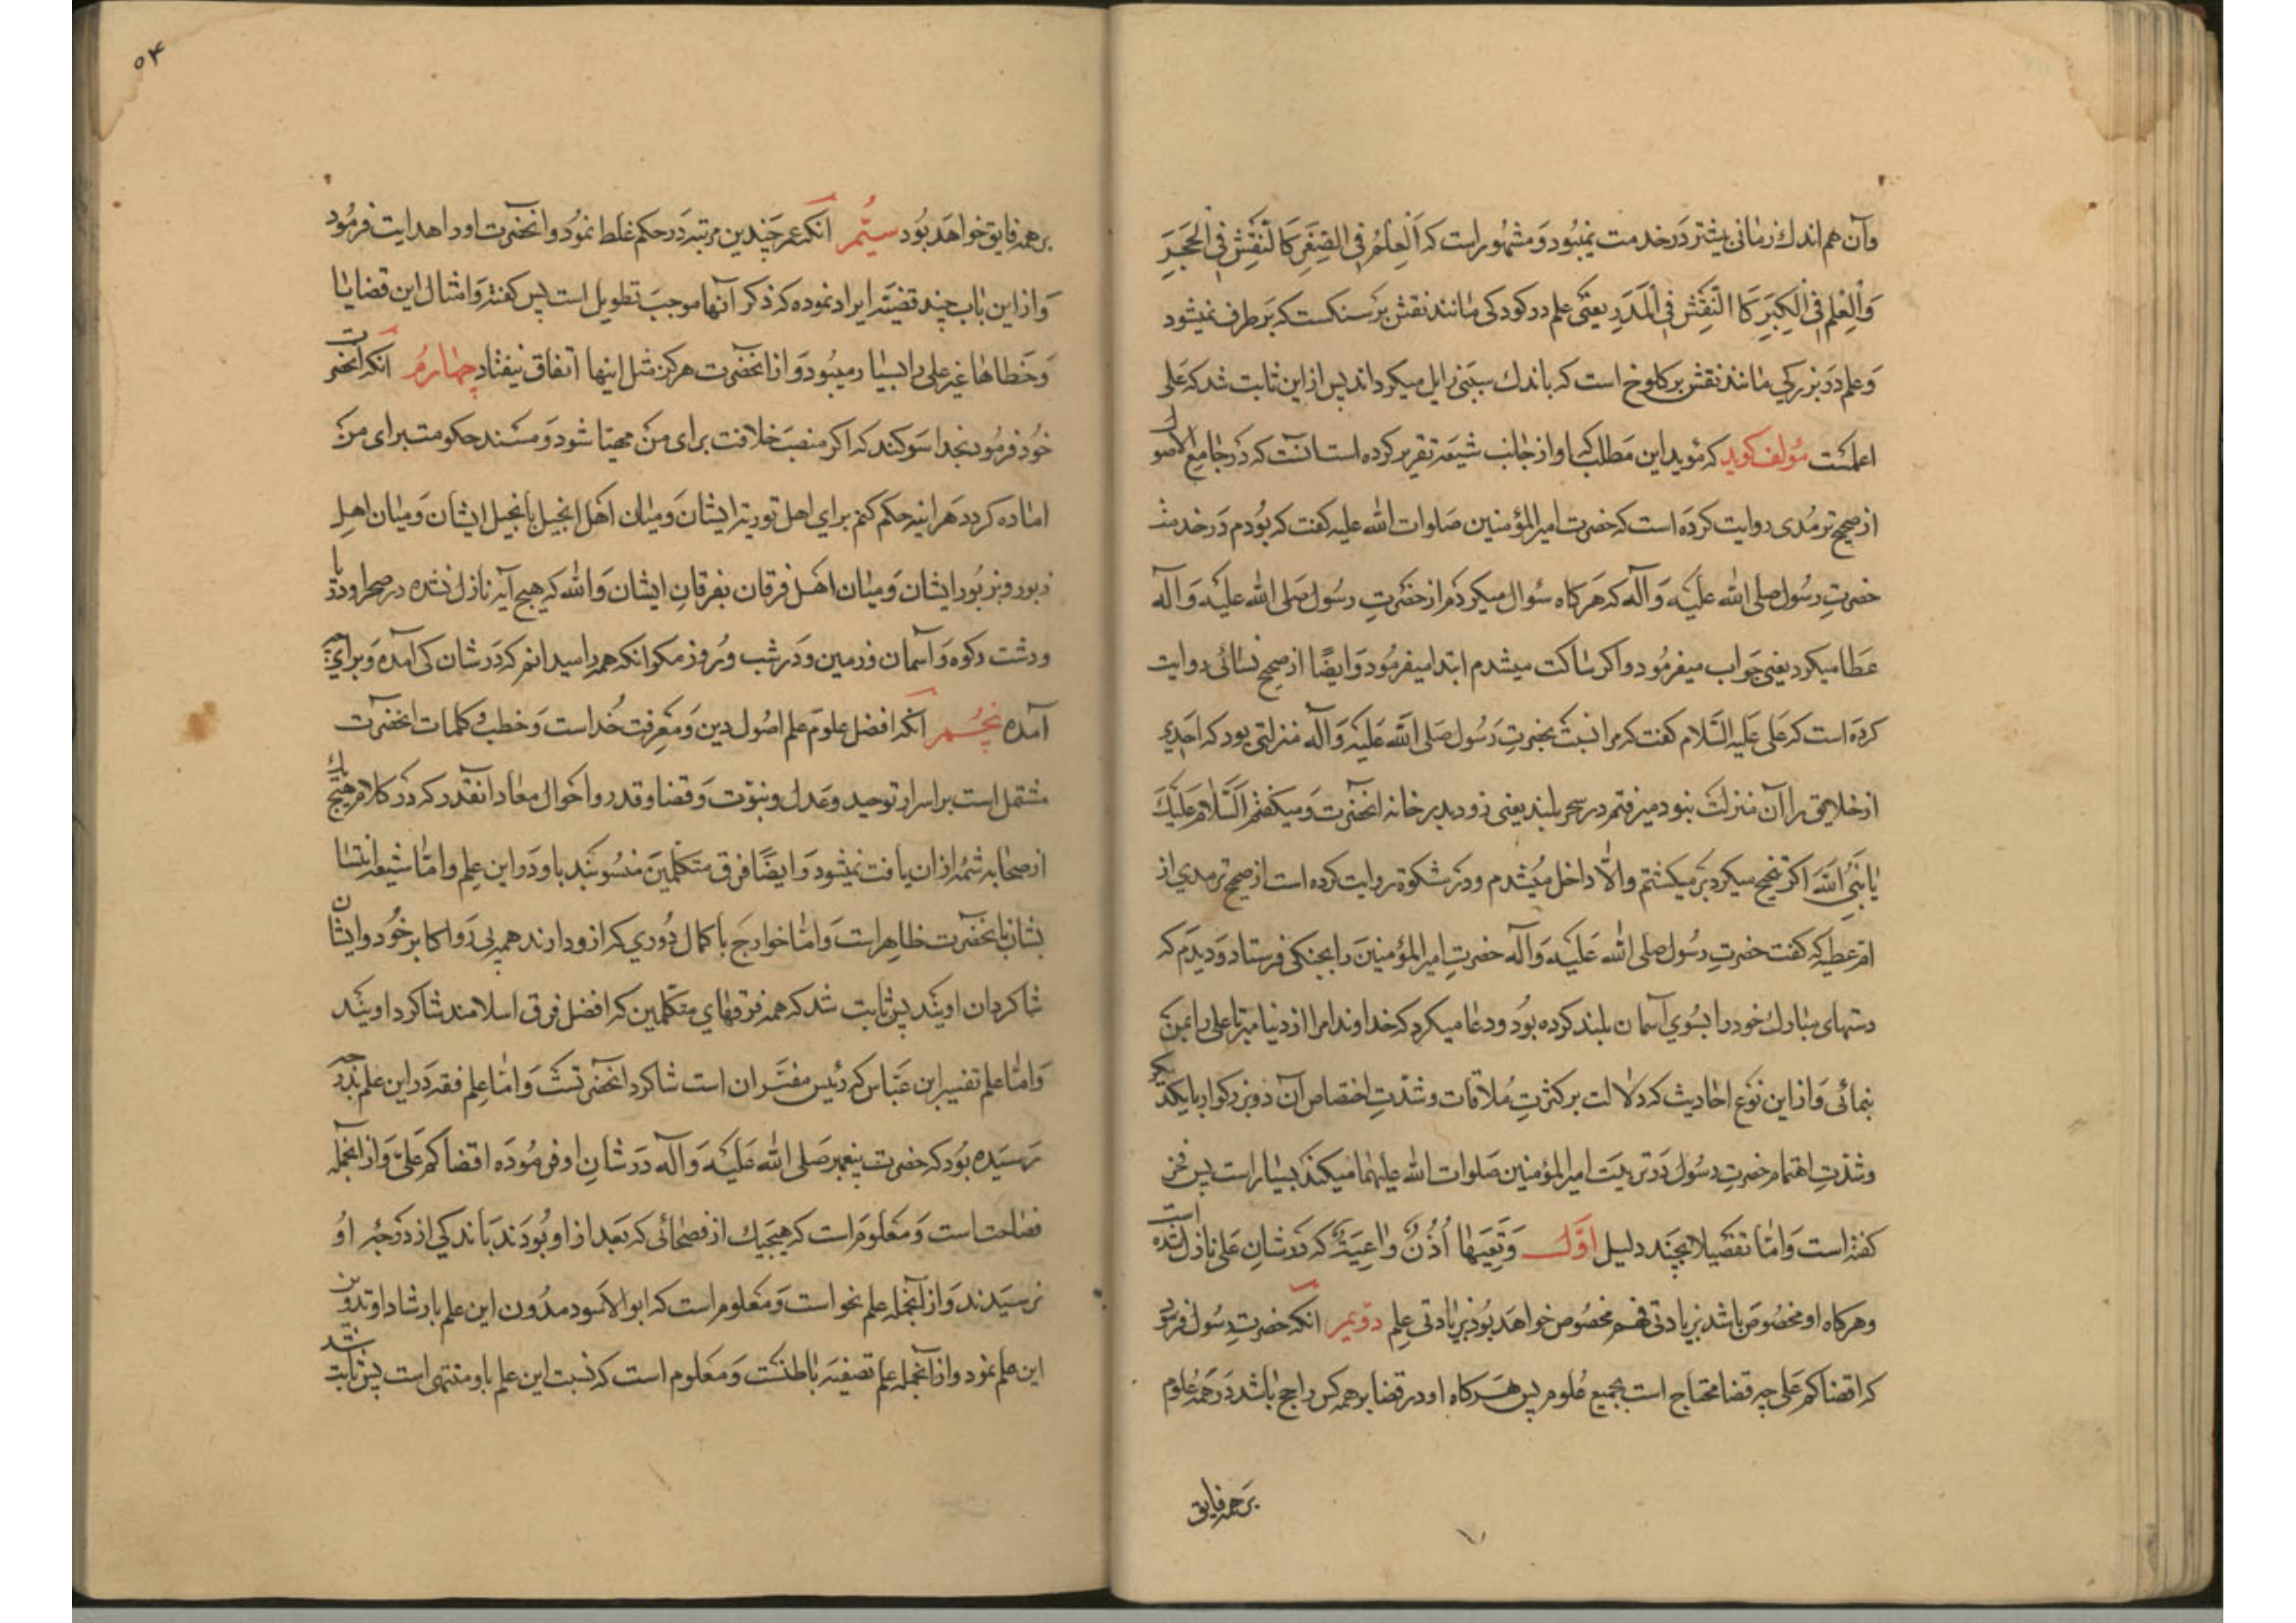 وآن هم اندك زمانی بیشتر در خدمت نمیبود و مشهور است که اَلْعِلْمُ فِی الصِّغَرِ کَالنَّقْشِ فِی الْحَجَرِ
وَالْعِلْمُ فِی الْکِبَرِ کَا النَّقْشِ فِی الْمَدَرِ یعنی علم در کودکی مانند نقش بر سنکست که بر طرف نمیشود
وعلم در بزرکی مانند نقش بر کلوخ است که باندك سببی زایل میکرداند پس از این ثابت شد که علی
اعلمست مؤلف کوید که مؤید این مطلب که او از جانب شیعه تقریر کرده است آنست که در جامع الاصول
از صحیح ترمدی روایت کرده است که حضرت امیر المؤمنین صلوات الله علیه کفت که بودم در خدمت
حضرتِ رسول صلی الله علیه وآله که هرکاه سئوال میکردم از حضرتِ رسول صلی الله علیه وآله
عطا میکرد یعنی جواب میفرمود واکر ساکت میشدم ابتدا میفرمود وایضًا از صحیح نسائی روایت
کرده است که علی علیه السّلام کفت که مرا نسبت بحضرتِ رسول صلی الله علیه وآله منزلتی بود که احدی
از خلایق را آن منزلت نبود میرفتم در سحر بلند یعنی زود بدر خانه انحضرت ومیکفتم اَلسَّلامُ عَلَیْكَ
یا نَبِیَّ اللهِ اکر تنحنح میکرد بر میکشتم والّا داخل میشدم ودر مشکوة روایت کرده است از صحیح ترمدی از
امّ عطیه که کفت حضرتِ رسول صلی الله علیه وآله حضرتِ امیر المؤمنین را بجنکی فرستاد ودیدم که
دستهای مبارك خود را بسوی آسمان بلند کرده بود ودعا میکرد که خداوندا مرا از دنیا مبر تا علی را بمن
بنمائی واز این نوع احادیث که دلالت بر کثرتِ ملاقات وشدّتِ اختصاص آن دو بزرکوار با یکدیکر
وشدّتِ اهتمام حضرتِ رسول در تربیت امیر المؤمنین صلوات الله علیهما میکند بسیار است پس فخر
کفته است وامّا تفصیلا بچند دلیل اوّل وَتَعِیَهَا اُذُنٌ وَاعِیَةٌ که در شانِ علی نازل شده است
وهرکاه او مخصوص باشد بزیادتی فهم مخصوص خواهد بود بزیادتی علم دویّم انکه حضرتِ رسول فرمود
که اقضاکم علی چه قضا محتاج است بجمیع علوم پس هرکاه او در قضا بر همه کس راجح باشد در همه علوم
بر همه فایق
۵۴
بر همه فایق خواهد بود سیّم انکه عمر چندین مرتبه در حکم غلط نمود وانحضرت او را هدایت فرمود
واز این باب چند قضیّه ایراد نموده که ذکر آنها موجب تطویل است پس کفته وامثال این قضایا
وخطاها غیر علی را بسیار میبود واز انحضرت هرکز مثل اینها اتفاق نیفتاد چهارم انکه انحضرت
خود فرمود بخدا سوکند که اکر منصب خلافت برای من مهیّا شود ومسند حکومت برای من
اماده کردد هراینه حکم کنم برای اهل توریة بتوریة ایشان ومیان اهل انجیل بانجیل ایشان ومیان اهلِ
زبور بزبور ایشان ومیان اهل فرقان بفرقانِ ایشان والله که هیچ آیه نازل نشده در صحرا ودریا
ودشت وکوه وآسمان وزمین ودر شب وروز مکر انکه همه را میدانم که در شان کی آمده وبرای چه
آمده پنجم انکه افضل علوم علم اصول دین ومعرفت خداست وخطب وکلمات انحضرت
مشتمل است بر اسرار توحید وعدل ونبوّت وقضا وقدر واحوال معاد انقدر که در کلام هیچیك
از صحابه شمّه از ان یافت نمیشود وایضًا فرق متکلّمین منسوبند باو در این علم وامّا شیعه انتساب
ایشان بانحضرت ظاهر است وامّا خوارج با کمال دوری که از او دارند همه پی رو اکابر خود وایشان
شاکردان اویند پس ثابت شد که همه فرقهای متکلّمین که افضل فرق اسلامند شاکرد اویند
وامّا علم تفسیر ابن عبّاس که رئیس مفسّران است شاکرد انحضرتست وامّا علم فقه در این علم بدرجه
رسیده بود که حضرت پیغمبر صلی الله علیه وآله در شانِ او فرموده اقضاکم علی واز انجمله
فصاحت است ومعلوم است که هیچیك از فصحائی که بعد از او بودند باندکی از درجه او
نرسیدند واز آنجمله علم نحو است ومعلوم است که ابو الاسود مدون این علم بارشاد او تدوین
این علم نمود واز آنجمله علم تصفیه باطنست ومعلوم است که نسبت این علم باو منتهی است پس ثابت شد